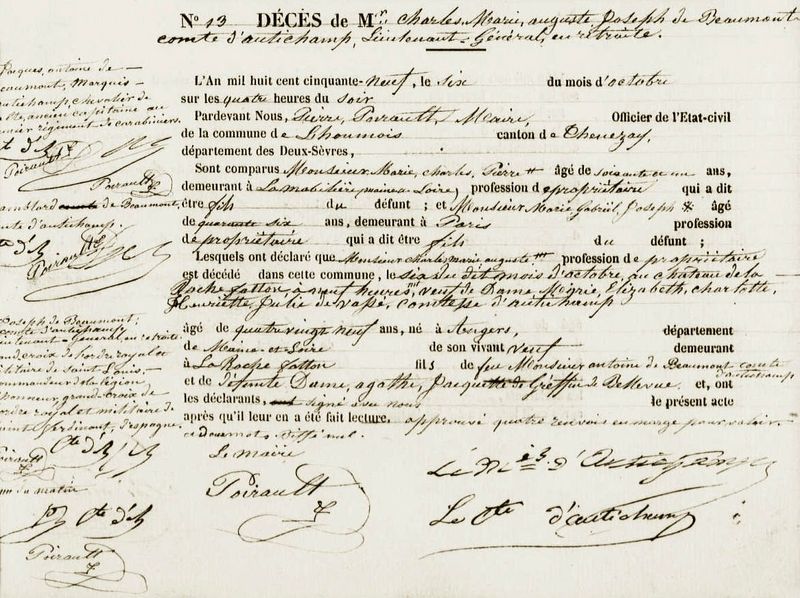 N° 13 DÉCÈS de Mr. Charles, Marie, auguste Joseph de Beaumont
comte d'autichamp, Lieutenant-Général, en retraite.
L'An mil huit cent cinquante-neuf, le six du mois d'octobre
sur les quatre heures du soir
Pardevant Nous, Pierre, Poirault, Maire, Officier de l'Etat-civil
de la commune de Lhoumois canton de Thenezay,
département des Deux-Sèvres,
Sont comparus Monsieur Marie, Charles, Pierre # âgé de soixante et un ans,
demeurant à La mabilière (maine-&-Loire) profession de propriétaire qui a dit
être fils du défunt ; et Monsieur Marie Gabriel, Joseph # âgé
de quarante six ans, demeurant à Paris profession
de propriétaire qui a dit être fils du défunt ;
Lesquels ont déclaré que Monsieur Charles marie auguste profession de propriétaire
est décédé dans cette commune, le six du dit mois d'octobre, au château de la
Roche fatton, à neuf heures mn, veuf de Dame Marie, Elizabeth, Charlotte,
Henriette, Julie de Vassé, comtesse d'autichamp
âgé de quatre vingt neuf ans, né à Angers, département
de Maine-et-Loire de son vivant veuf demeurant
à La Roche fatton fils de feu Monsieur antoine de Beaumont comte
d'autichamp
et de défunte Dame, agathe, Jacquette de Greffin de Bellevue et, ont
les déclarants, signé avec nous le présent acte
après qu'il leur en a été fait lecture. approuvé quatre renvois en marge pour valoir
et deux mots biffé nul.
Le maire
Poirault
Le Mis d'Autichamp
Le Cte d'autichamp
Jacques, antoine de
Beaumont, Marquis
d'autichamp, chevalier de
Malte, ancien capitaine au
premier régiment de carabiniers.
Cte d'A
Poirault
Poirault
de Beaumont,
comte d'autichamp.
Cte d'A
Poirault
Joseph de Beaumont,
comte d'autichamp
Lieutenant-Général, en retraite
Grand croix de l'ordre royal et
militaire de Saint Louis,
commandeur de la légion
d'honneur, grand croix de
l'ordre royal et militaire de
Saint ferdinand, d'espagne.
Cte d'A
Poirault
du matin
Cte d'A
Poirault